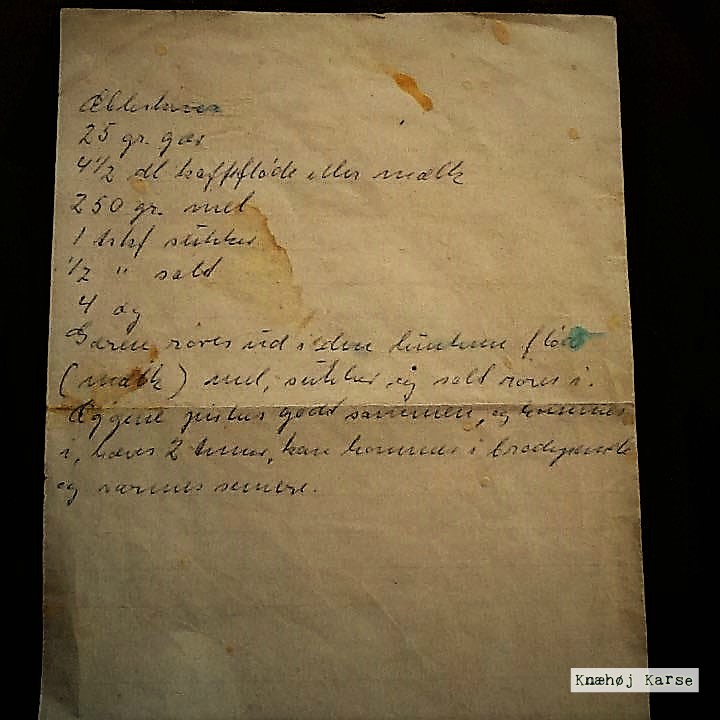 Æbleskiver
25 gr. gær
4 1/2 dl kaffefløde eller mælk
250 gr. mel
1 tskf sukker
1/2 " salt
4 æg
Gæren røres ud i den lunkne fløde
(mælk) mel, sukker og salt røres i.
Æggene piskes godt sammen, og kommes
i, hæves 2 timer, kan kommes i brødpande
og varmes senere.
Knæhøj Karse